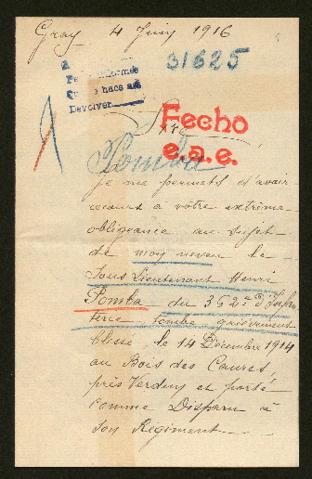 Gray 4 Juin 1916
31625
Devolver
Sire
Fecho
Pomba
e.a.e.
Je me permets d'avoir
recours a votre extrême
obligeance au sujet
de mon neveu le
Sous Lieutenant Henri
Pomba du 362e d'Infan
terie tombé grièvement
blessé, le 14 Décembre 1914
au Bois des Caures,
près Verdun et porté
comme Disparu à
son Régiment